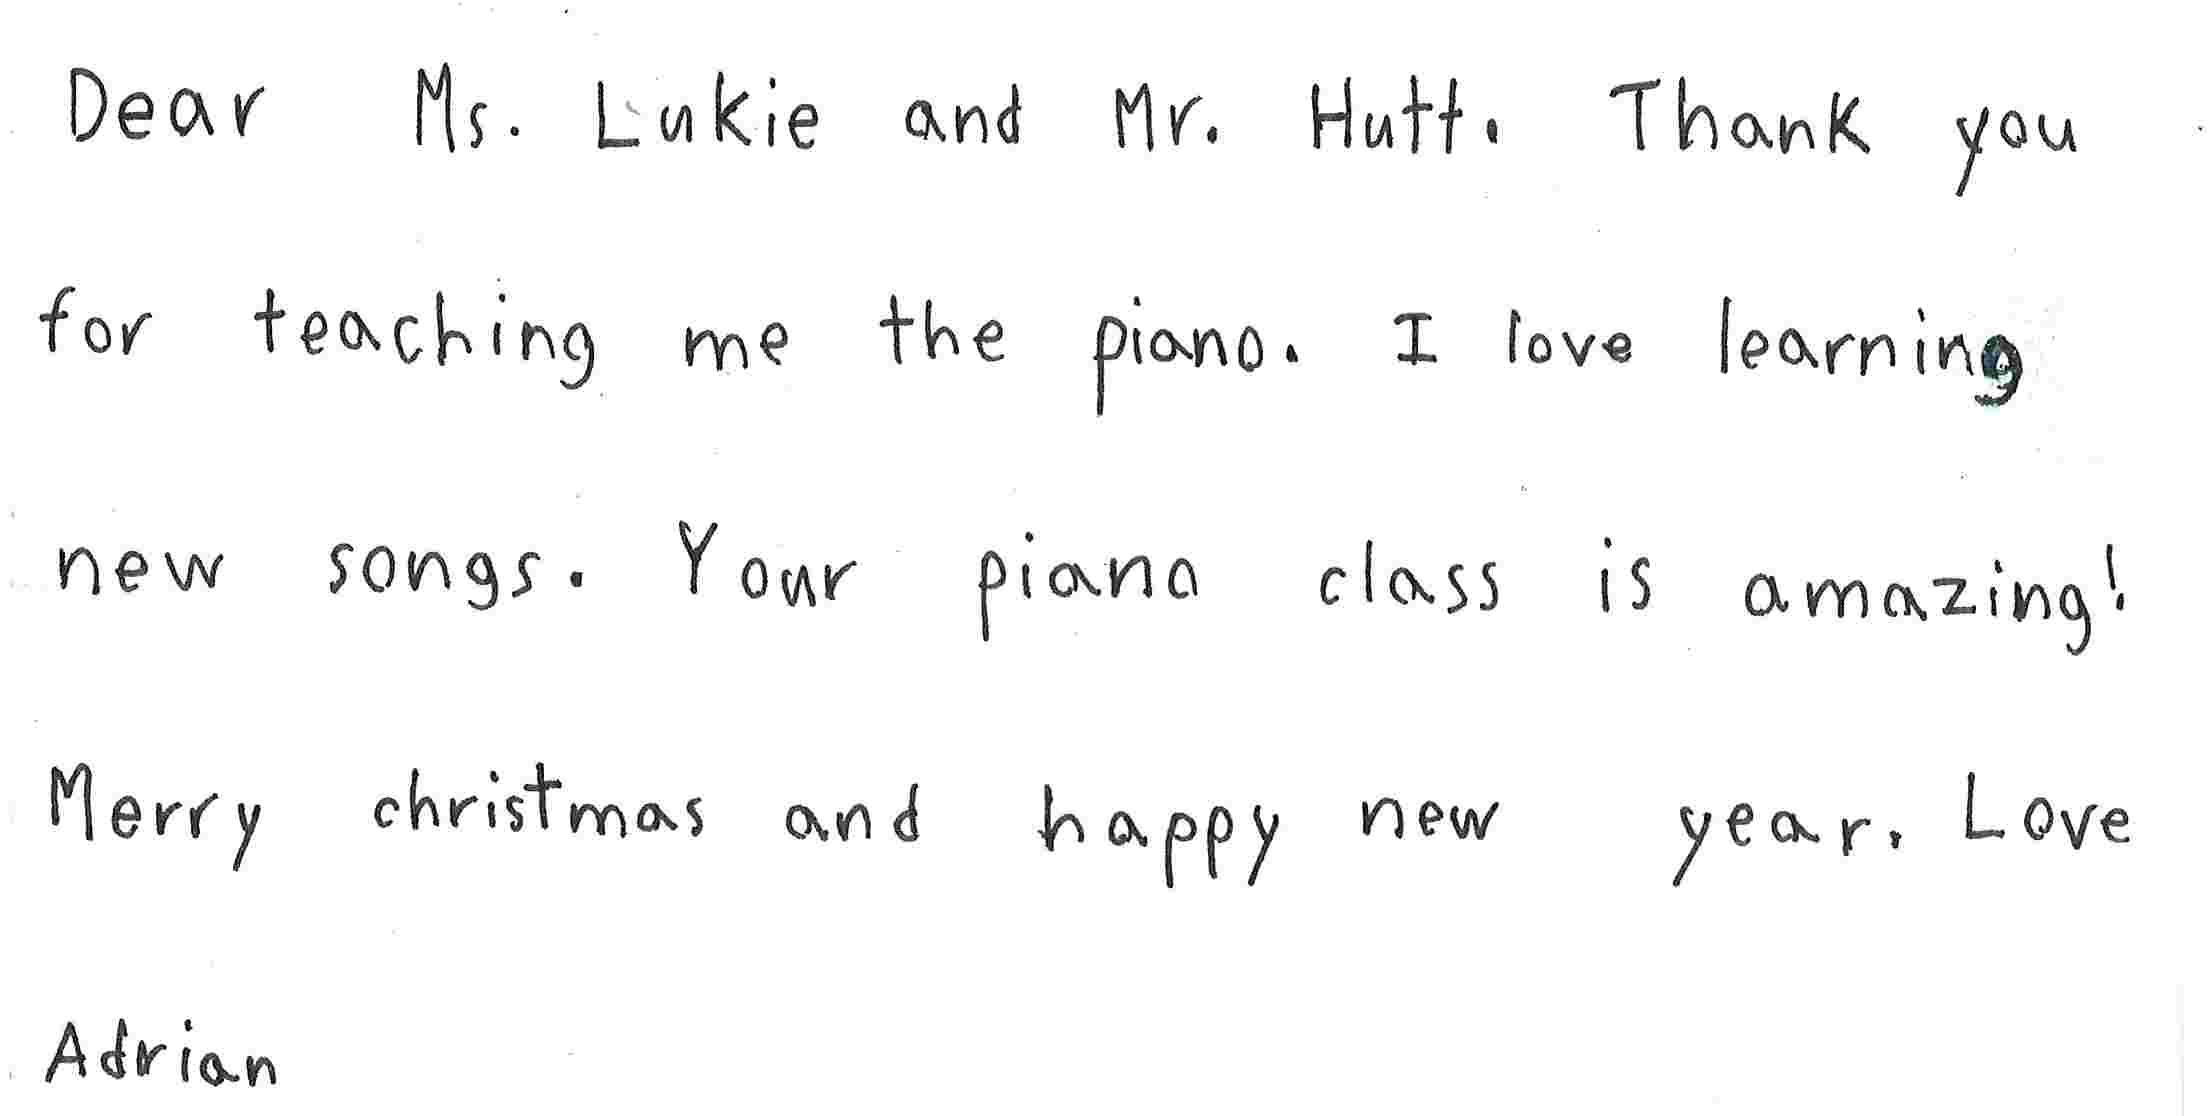 Dear Ms. Lukie and Mr. Hutt. Thank you
for teaching me the piano. I love learning
new songs. Your piano class is amazing!
Merry christmas and happy new year. Love
Adrian